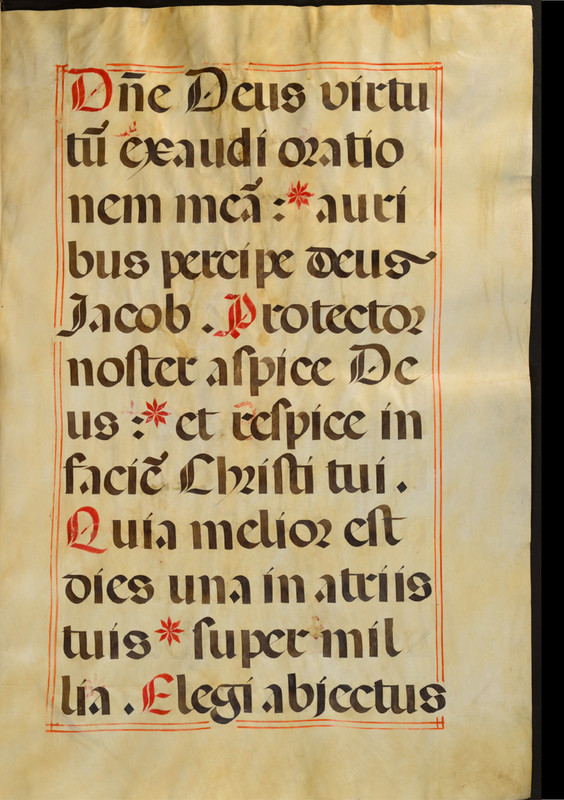 Dñe Deus virtu
tũ exaudi oratio
nem meã : * auri
bus percipe deus
Jacob . Protector
noſter aſpice De
us : * et reſpice in
faciẽ Chriſti tui .
Quia melior eſt
dies una in atriis
tuis * ſuper mil
lia . Elegi abjectus